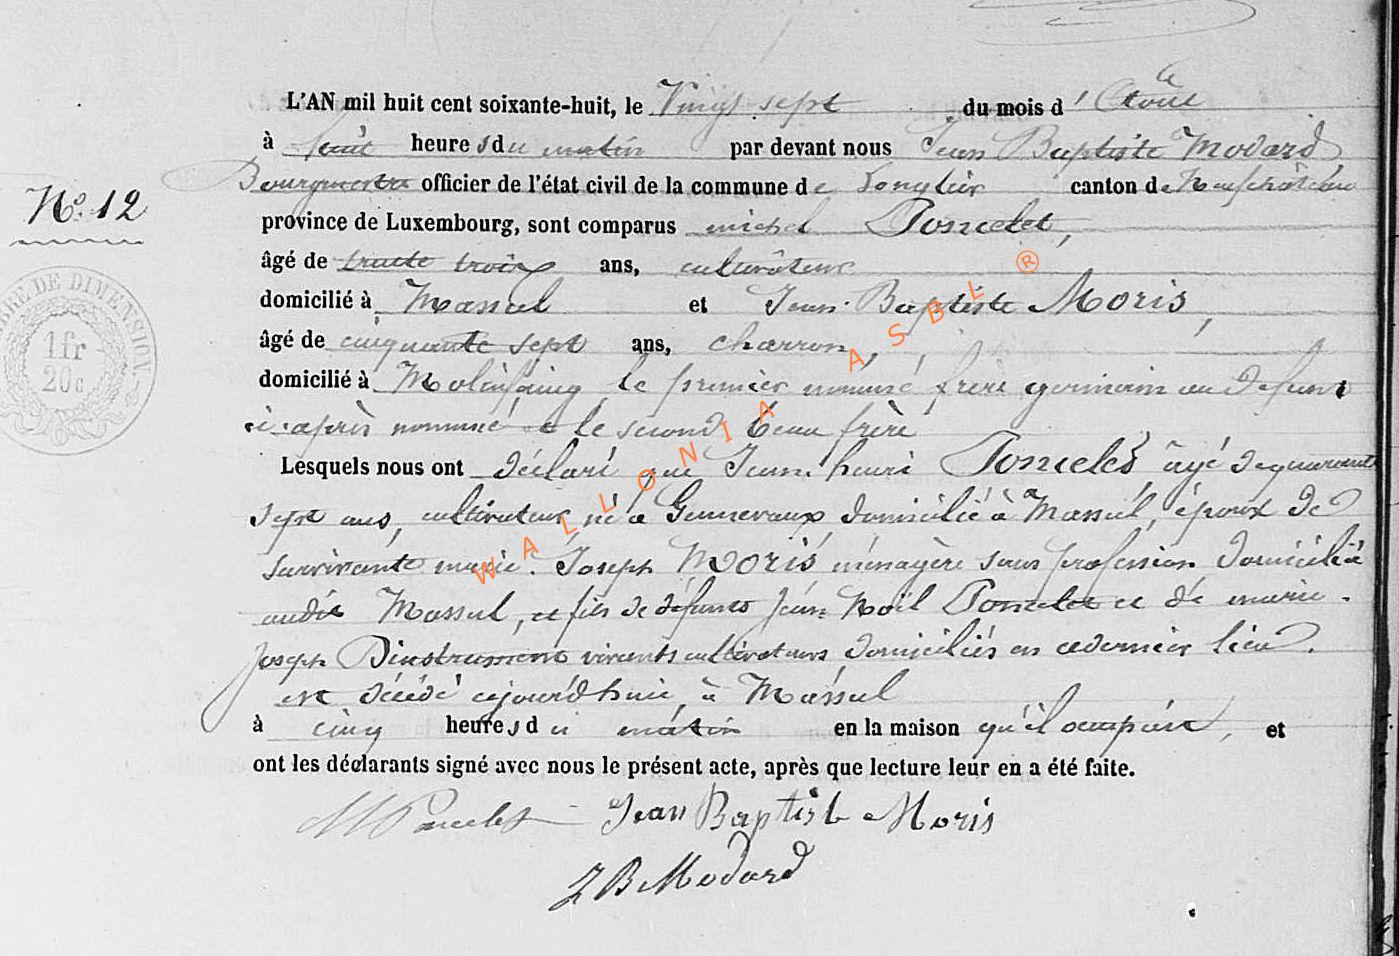 L'AN mil huit cent soixante-huit, le Vingt sept du mois d' Août
à huit heures du matin par devant nous Jean Baptiste Modard
Bourgmestre officier de l'état civil de la commune de Longlier canton de Neufchâteau
N.o 12
province de Luxembourg, sont comparus michel Poncelet,
âgé de trente trois ans, cultivateur
domicilié à Massul et Jean Baptiste Moris,
âgé de cinquante sept ans, charron,
domicilié à Molinfaing, le premier nommé frère germain au défunt
ci-après nommé et le second beau frère
Lesquels nous ont déclaré que Jean henri Poncelet, âgé de quarante
sept ans, cultivateur, né à Gennevaux, domicilié à Massul, époux de
survivante marie Joseph Moris ménagère sans profession domiciliée
audit Massul, et fils de défunts Jean Noël Poncelet et de marie
joseph vivants cultivateurs domiciliés en ce dernier lieu.
est décédé cejourd'hui à Massul
à cinq heures du matin en la maison qu'il occupait, et
ont les déclarants signé avec nous le présent acte, après que lecture leur en a été faite.
M Poncelet Jean Baptist Moris
J B Modard
TIMBRE DE DIMENSION
1 fr
20 c
WALLONIA ASBL ®